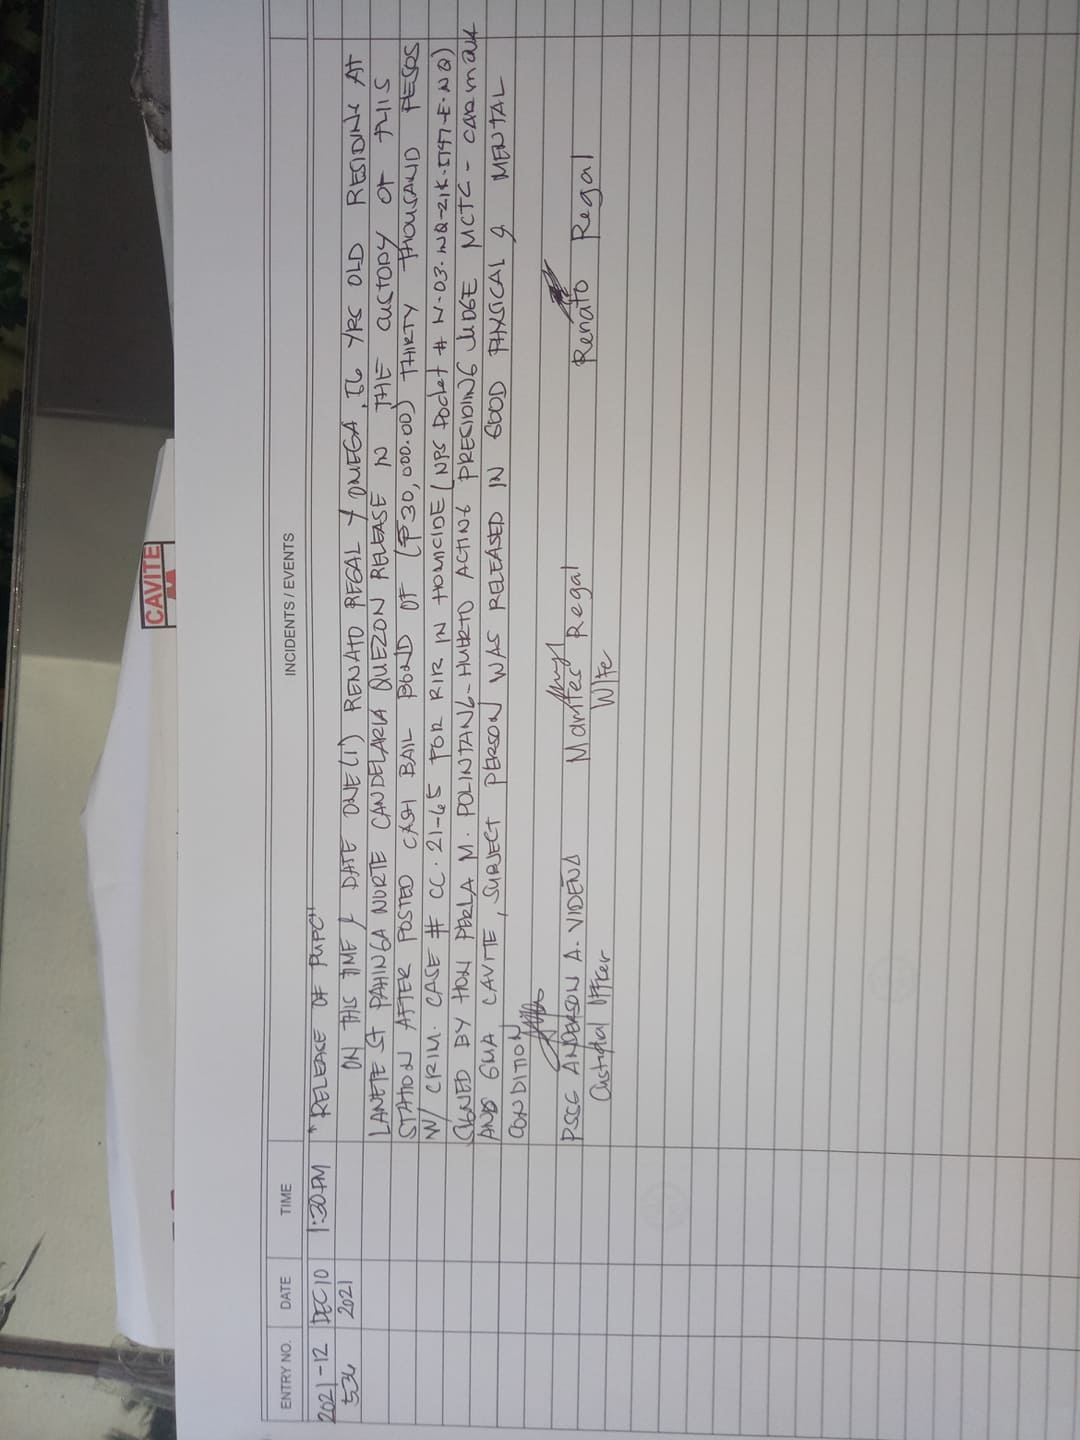 CAVITE
ENTRY NO. DATE TIME INCIDENTS / EVENTS
2021-12 DEC 10 1:30 PM "RELEASE OF PUPC"
536 2021 ON THIS TIME & DATE ONE (1) RENATO REGAL Y OMEGA, 56 YRS OLD RESIDING AT
LANETE ST PAHINGA NORTE CANDELARIA QUEZON RELEASE IN THE CUSTODY OF THIS
STATION AFTER POSTED CASH BAIL BOND OF (₱30,000.00) THIRTY THOUSAND PESOS
W/ CRIM. CASE # CC-21-65 FOR RIR IN HOMICIDE (NPS Docket # N-03-INQ-21K-
SIGNED BY HON PERLA M. POLINTANG-HUERTO ACTING PRESIDING JUDGE MCTC - CARMONA
AND GMA, CAVITE, SUBJECT PERSON WAS RELEASED IN GOOD PHYSICAL & MENTAL
CONDITION
ANDERSON A. VIDEÑA Marites Regal Renato Regal
Custodial Officer Wife